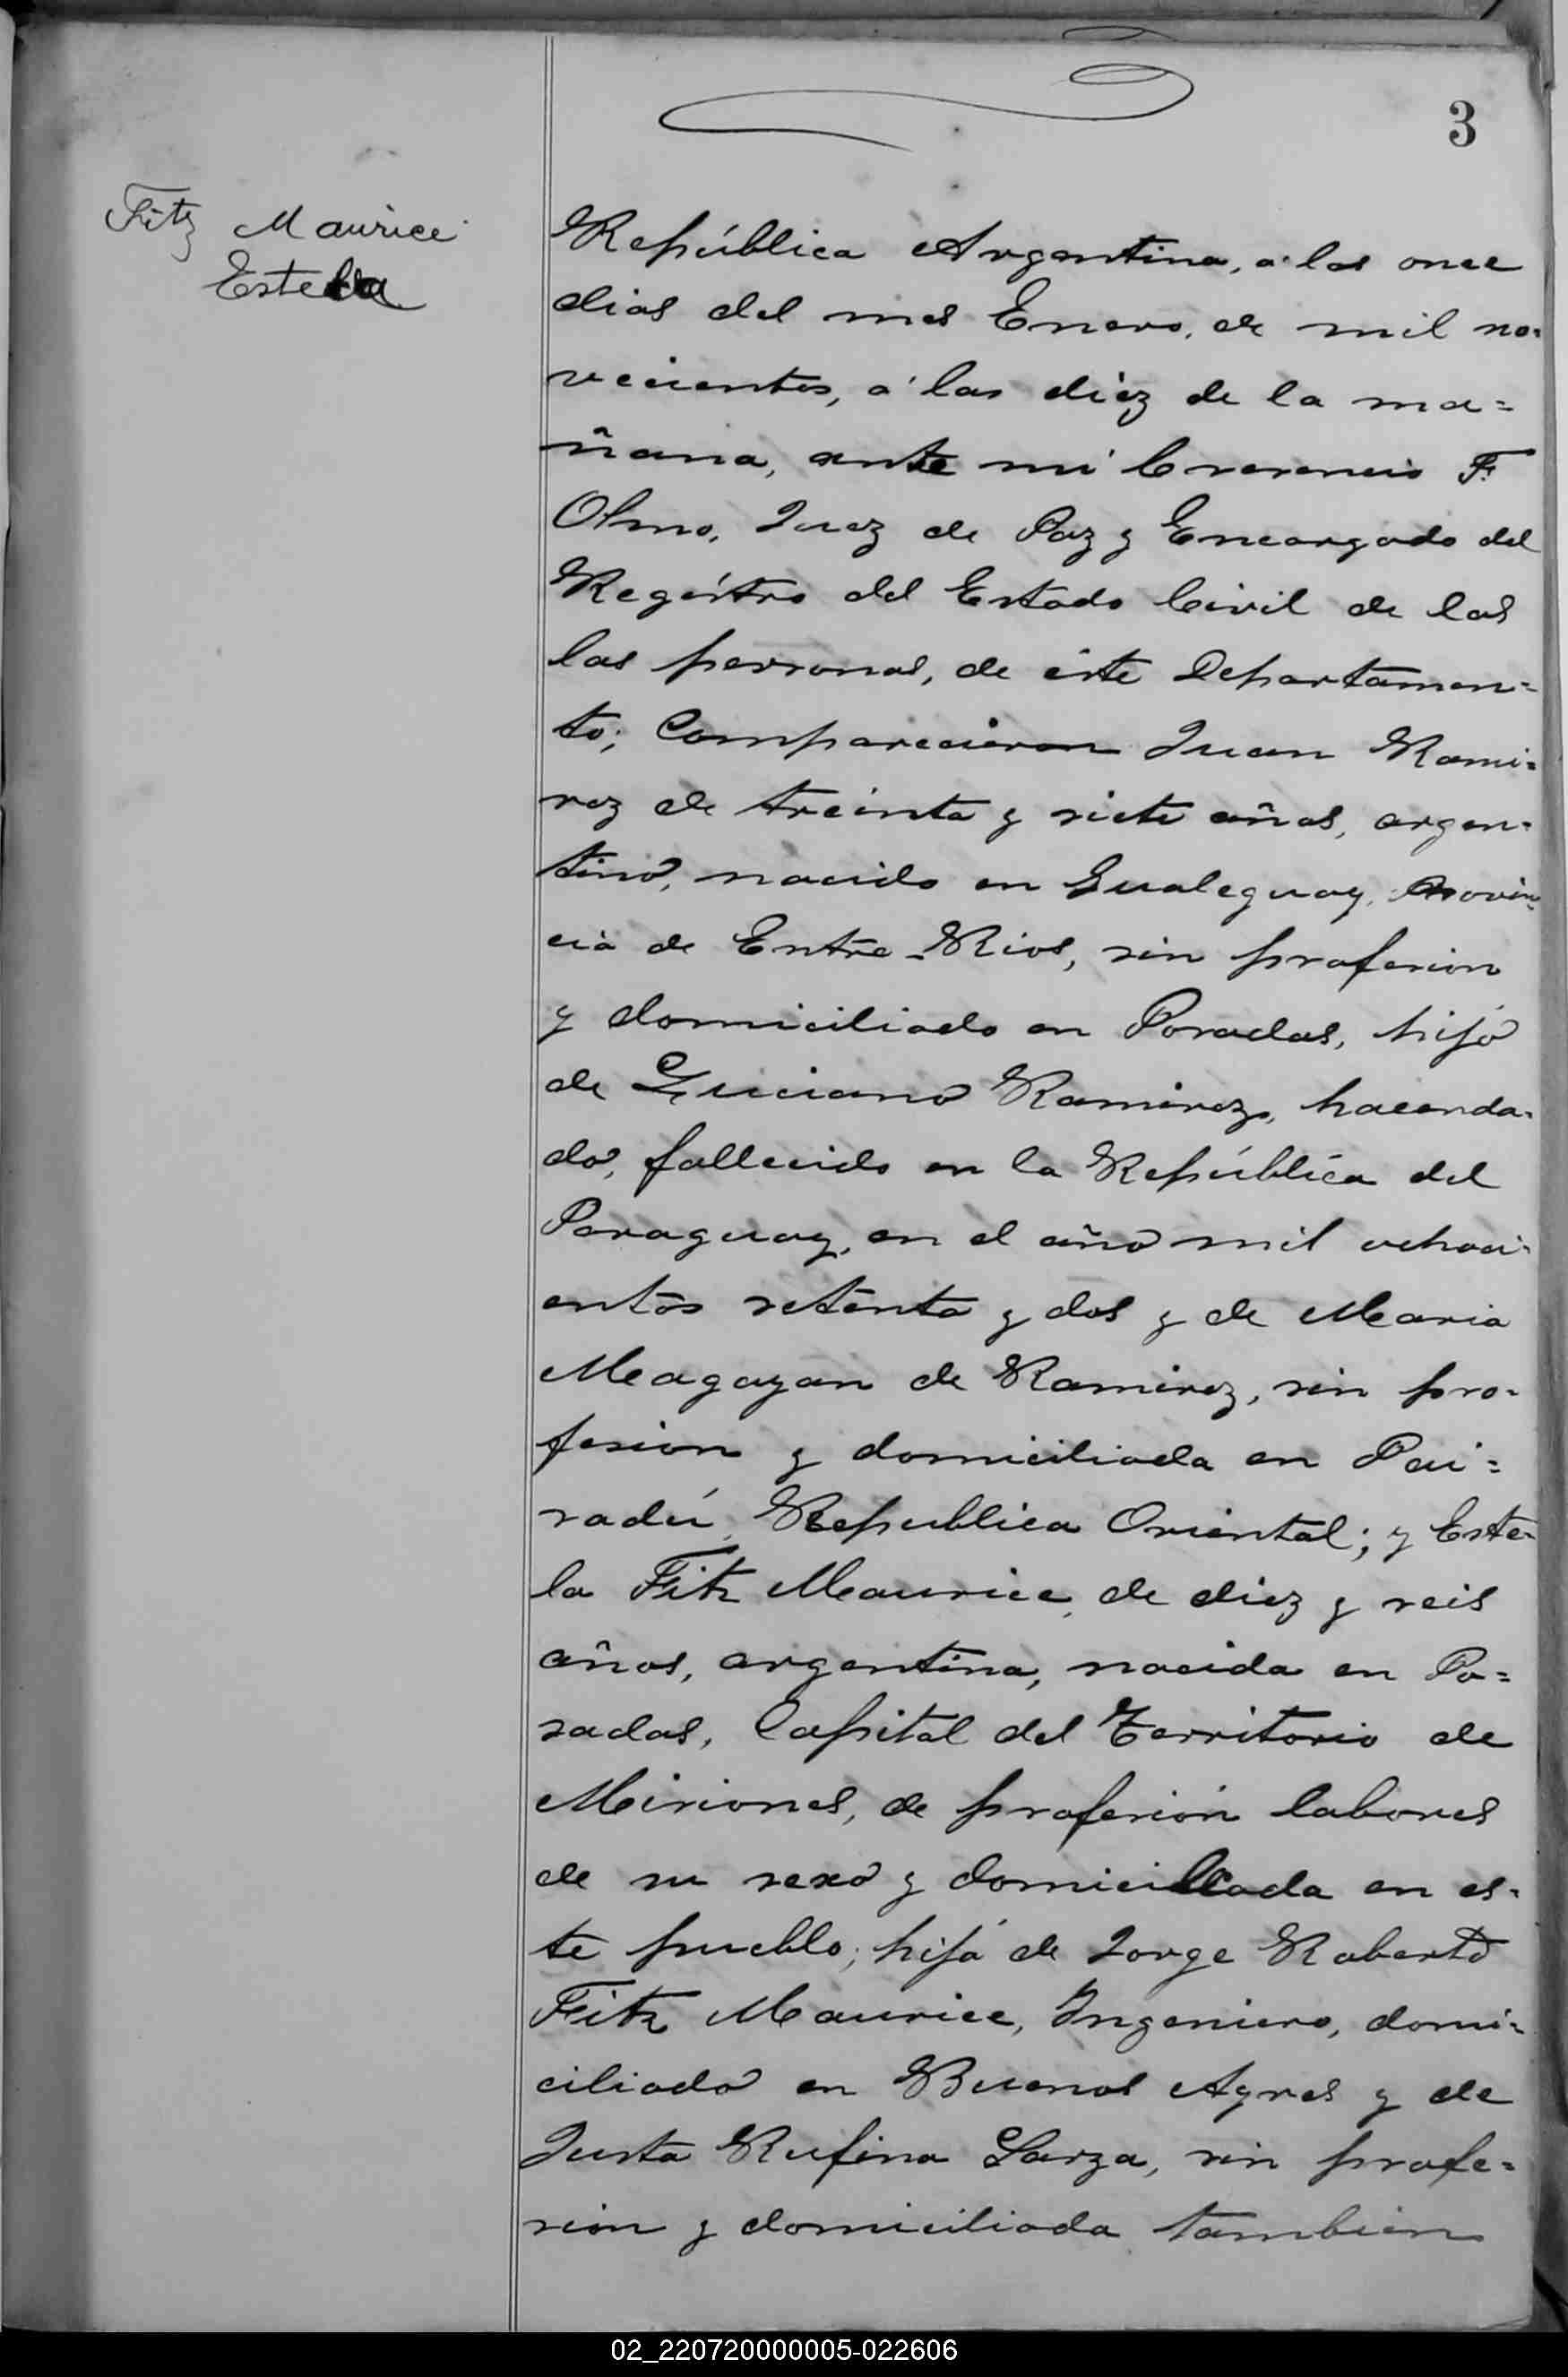 3
Fitz Maurice
Estela
República Argentina, á los once
dias del mes Enero, de mil no=
vecientos, á las diez de la ma=
ñana, ante mi F.
Olmo, Juez de Paz y Encargado del
Registro del Estado Civil de las
las personas, de este Departamen=
to; Comparecieron Juan Rami=
rez de treinta y siete años, argen=
tino, nacido en Gualeguay, Provin=
cia de Entre-Rios, sin profesion
y domiciliado en Posadas, hijo
de Luciano Ramirez, hacenda=
do, fallecido en la República del
Paraguay, en el año mil ochoci=
entos setenta y dos y de Maria
Meagayan de Ramirez, sin pro=
fesion y domiciliada en Pai=
sadú, Republica Oriental; y Este=
la Fitz Maurice, de diez y seis
años, argentina, nacida en Po=
sadas, Capital del Territorio de
Misiones, de profesión labores
de su sexo y domiciliada en es=
te pueblo; hija de Jorge Roberto
Fitz Maurice, Ingeniero, domi=
ciliado en Buenos Ayres y de
Justa Rufina Sarza, sin profe=
sion y domiciliada tambien
02_220720000005-022606